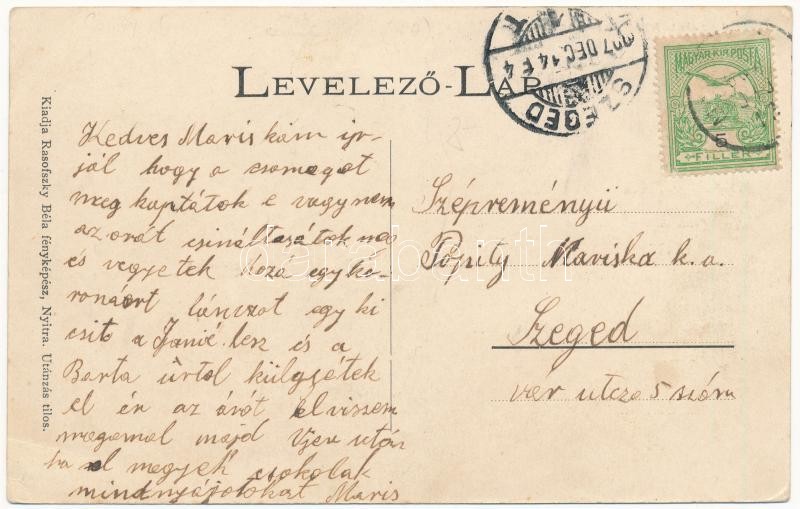 LEVELEZŐ-LAP
SZEGED
907 DEC. 14
MAGYAR·KIR·POSTA
5
FILLER
Kiadja Rasofszky Béla fényképész, Nyitra. Utánzás tilos.
Kedves Maris kám ir-
jál hogy a csomagot
meg kaptátok e vagy nem
az orát csináltasátok meg
és vegyetek hozá egy ko-
ronáért lánczot egy ki
csit a Janié lesz és a
Barta úrtol külgyétek
el én az árót elvissem
magamal majd Ujév után
ha el megyek csokolak
mindnyájotokat Maris
Szépreményü
Popity Mariska k. a.
Szeged
ver utcza 5 szám
darabanth